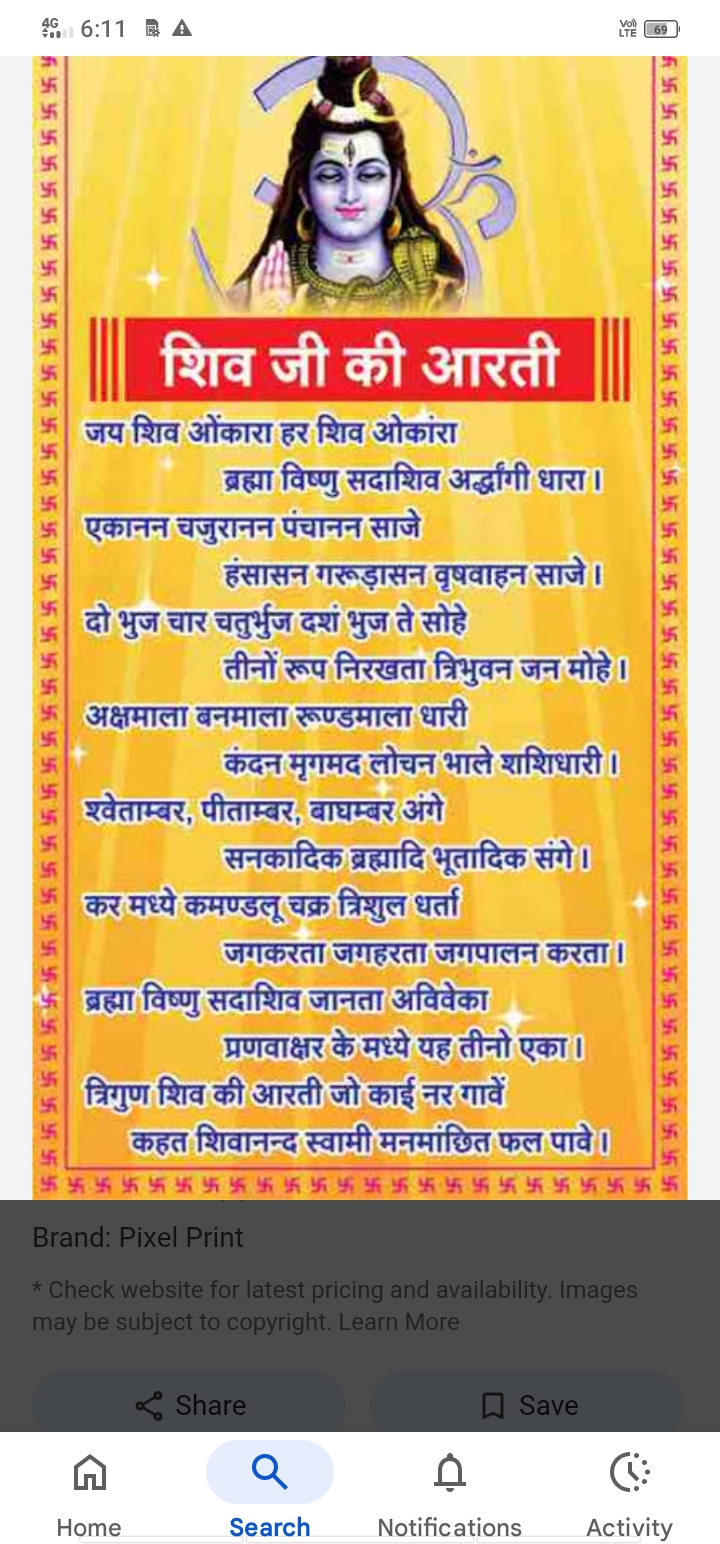 4G 6:11 Vo) LTE 69
शिव जी की आरती
जय शिव ओंकारा हर शिव ओकांरा
ब्रह्मा विष्णु सदाशिव अर्द्धांगी धारा।
एकानन चजुरानन पंचानन साजे
हंसासन गरूड़ासन वृषवाहन साजे।
दो भुज चार चतुर्भुज दशं भुज ते सोहे
तीनों रूप निरखता त्रिभुवन जन मोहे।
अक्षमाला बनमाला रूण्डमाला धारी
कंदन मृगमद लोचन भाले शशिधारी।
श्वेताम्बर, पीताम्बर, बाघम्बर अंगे
सनकादिक ब्रह्मादि भूतादिक संगे।
कर मध्ये कमण्डलू चक्र त्रिशुल धर्ता
जगकरता जगहरता जगपालन करता।
ब्रह्मा विष्णु सदाशिव जानता अविवेका
प्रणवाक्षर के मध्ये यह तीनो एका।
त्रिगुण शिव की आरती जो काई नर गावें
कहत शिवानन्द स्वामी मनमांछित फल पावे।
Brand: Pixel Print
* Check website for latest pricing and availability. Images
may be subject to copyright. Learn More
Share Save
Home Search Notifications Activity